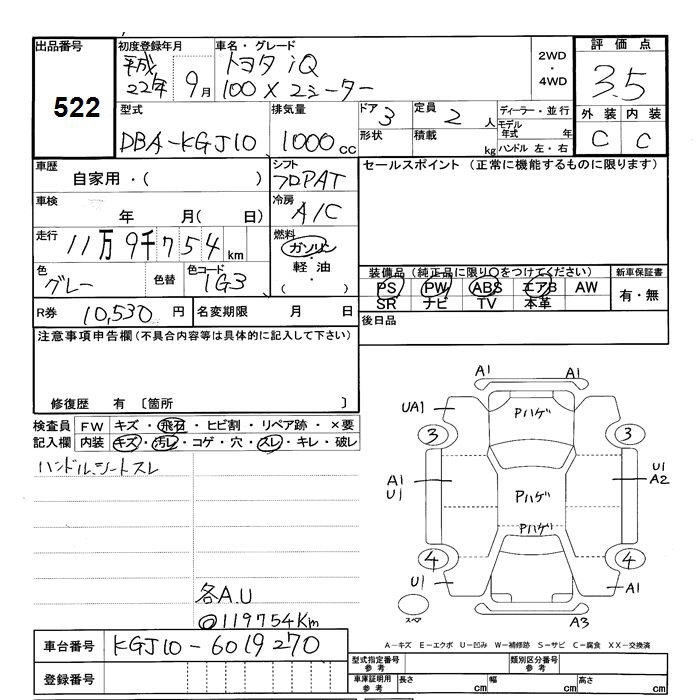 出品番号 522
初度登録年月 平成22年 9月
車名・グレード トヨタ iQ
100 X 2シーター
2WD・4WD
評価点 3.5
外装 内装
C C
型式 DBA-KGJ10
排気量 1000cc
ドア 3
形状
定員 2人
積載 kg
ディーラー・並行
モデル年式 年
ハンドル 左・右
車歴 自家用・( )
シフト フロアAT
セールスポイント (正常に機能するものに限ります)
車検 年 月( 日)
冷房 A/C
走行 11万9千754km
燃料 ガソリン・軽油・( )
色 グレー 色替 色コード 1G3
装備品 (純正品に限り○をつけてください) 新車保証書
PS PW ABS エアB AW 有・無
SR ナビ TV 本革
R券 10,530円 名変期限 月 日
後日品
注意事項申告欄 (不具合内容等は具体的に記入して下さい)
修復歴 有 〔箇所 〕
検査員記入欄 FW キズ・飛石・ヒビ割・リペア跡・×要
内装 キズ・汚レ・コゲ・穴・スレ・キレ・破レ
ハンドル、シートスレ
各A.U
◎119754Km
A1 A1
UA1 Pハゲ
3 3
A1 U1 Pハゲ U1 A2
Pハゲ
4 4
U1 A1
スペア A3
車台番号 KGJ10-6019270
登録番号
A-キズ E-エクボ U-凹み W-補修跡 S-サビ C-腐食 XX-交換済
型式指定番号 参考 類別区分番号 参考
車庫証明用 参考 長さ cm 幅 cm 高さ cm